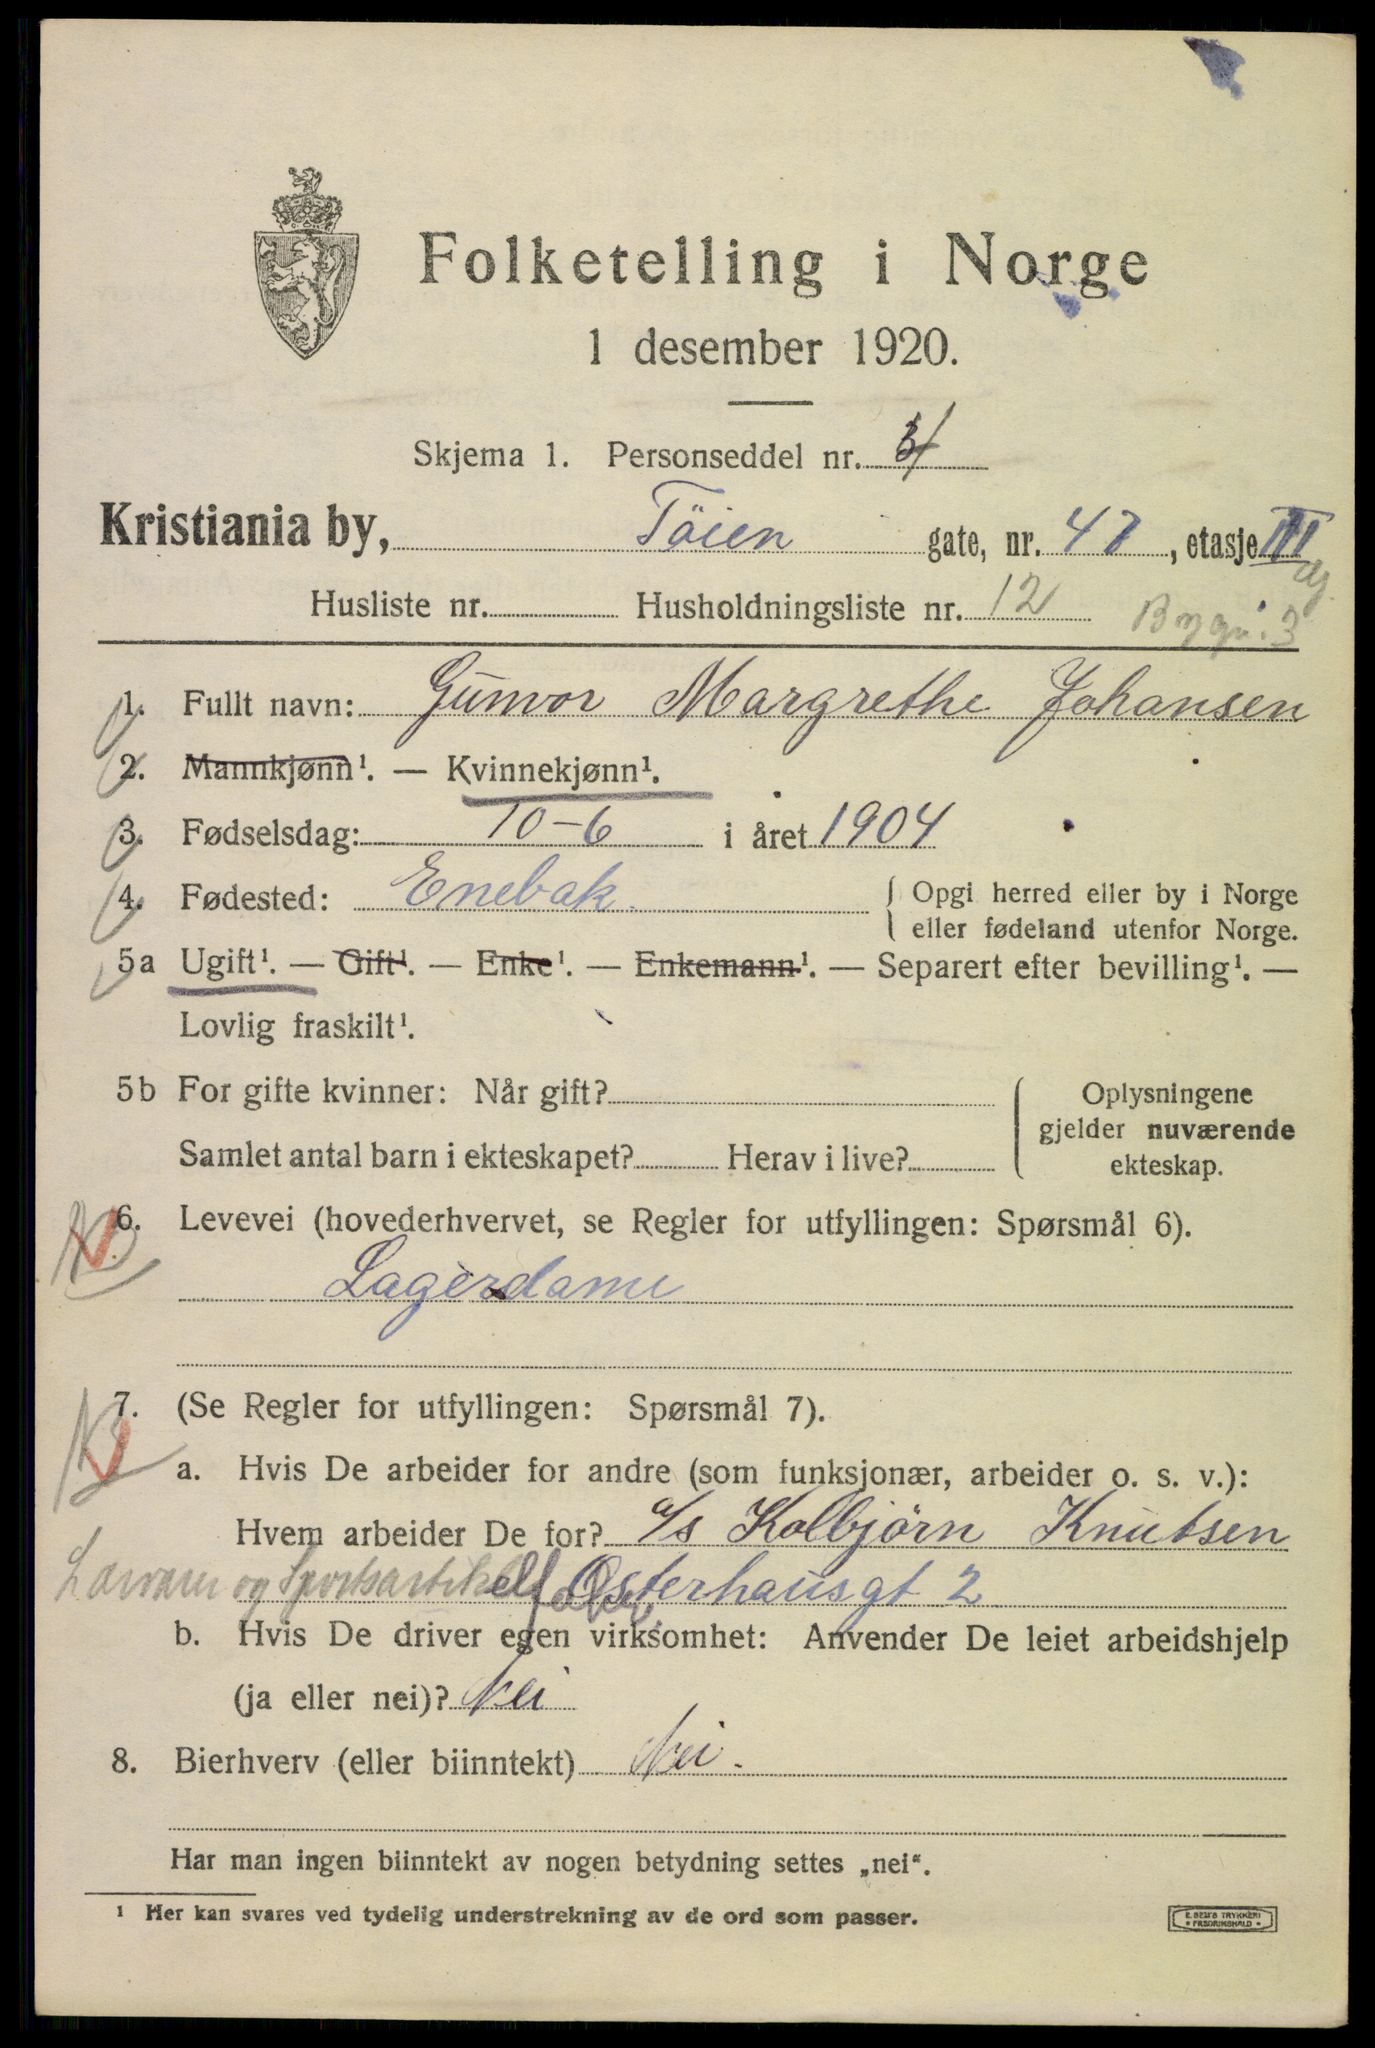 Folketelling i Norge
1 desember 1920.
Skjema 1. Personseddel nr.
Kristiania by, Töien gate, nr. 47, etasje III
Husliste nr. Husholdningsliste nr. 12
1. Fullt navn: Gunvor Margrethe Johansen
2. Mannkjønn¹. — Kvinnekjønn¹.
3. Fødselsdag: 10-6 i året 1904
4. Fødested: Enebak. { Opgi herred eller by i Norge
eller fødeland utenfor Norge.
5a Ugift¹. — Gift¹. — Enke¹. — Enkemann¹. — Separert efter bevilling¹. —
Lovlig fraskilt¹.
5b For gifte kvinner: Når gift? Oplysningene
gjelder nuværende
Samlet antal barn i ekteskapet? Herav i live? ekteskap.
6. Levevei (hovederhvervet, se Regler for utfyllingen: Spørsmål 6).
Lagerdame
7. (Se Regler for utfyllingen: Spørsmål 7).
a. Hvis De arbeider for andre (som funksjonær, arbeider o. s. v.):
Hvem arbeider De for? a/s Kolbjörn Knutsen
og Sportsartikel Osterhausgt 2
b. Hvis De driver egen virksomhet: Anvender De leiet arbeidshjelp
(ja eller nei)? Nei
8. Bierhverv (eller biinntekt) Nei.
Har man ingen biinntekt av nogen betydning settes „nei“.
¹ Her kan svares ved tydelig understrekning av de ord som passer.
E. SEM'S TRYKKERI
FREDRIKSHALD